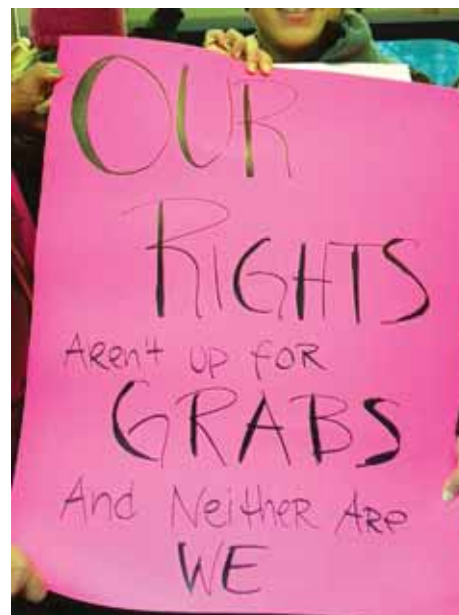 OUR
RIGHTS
Aren't UP FOR
GRABS
And Neither Are
WE